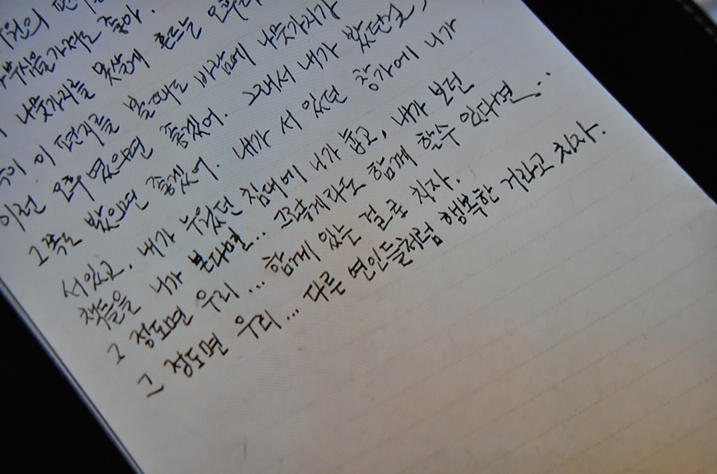 편
좋아.
나뭇가지를 못살게 흔드는 오후
이 편지를 볼때도 바람에 나뭇가지가
이런 오후였으면 좋겠어. 그래서 내가 봤던걸,
그쪽도 봤으면 좋겠어. 내가 서 있던 창가에 니가
서있고, 내가 누웠던 침대에 니가 눕고, 내가 보던
책들을 니가 본다면... 그렇게라도 함께 할수 있다면..
그 정도면 우리... 함께 있는 걸로 치자.
그 정도면 우리... 다른 연인들처럼 행복한 거라고 치자.